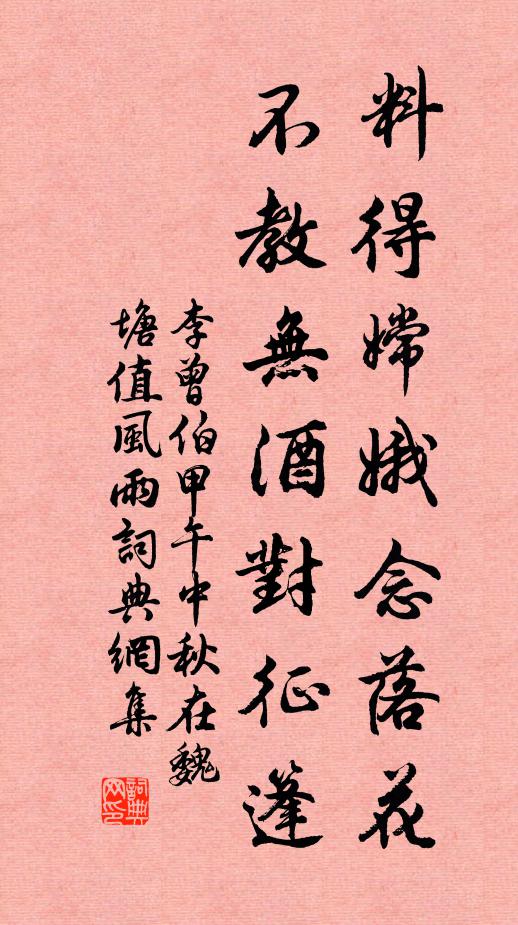 料得嫦娥念落花
不教無酒對征篷
李曾伯甲午中秋在魏
塘值風雨詞典網集
詞典网印